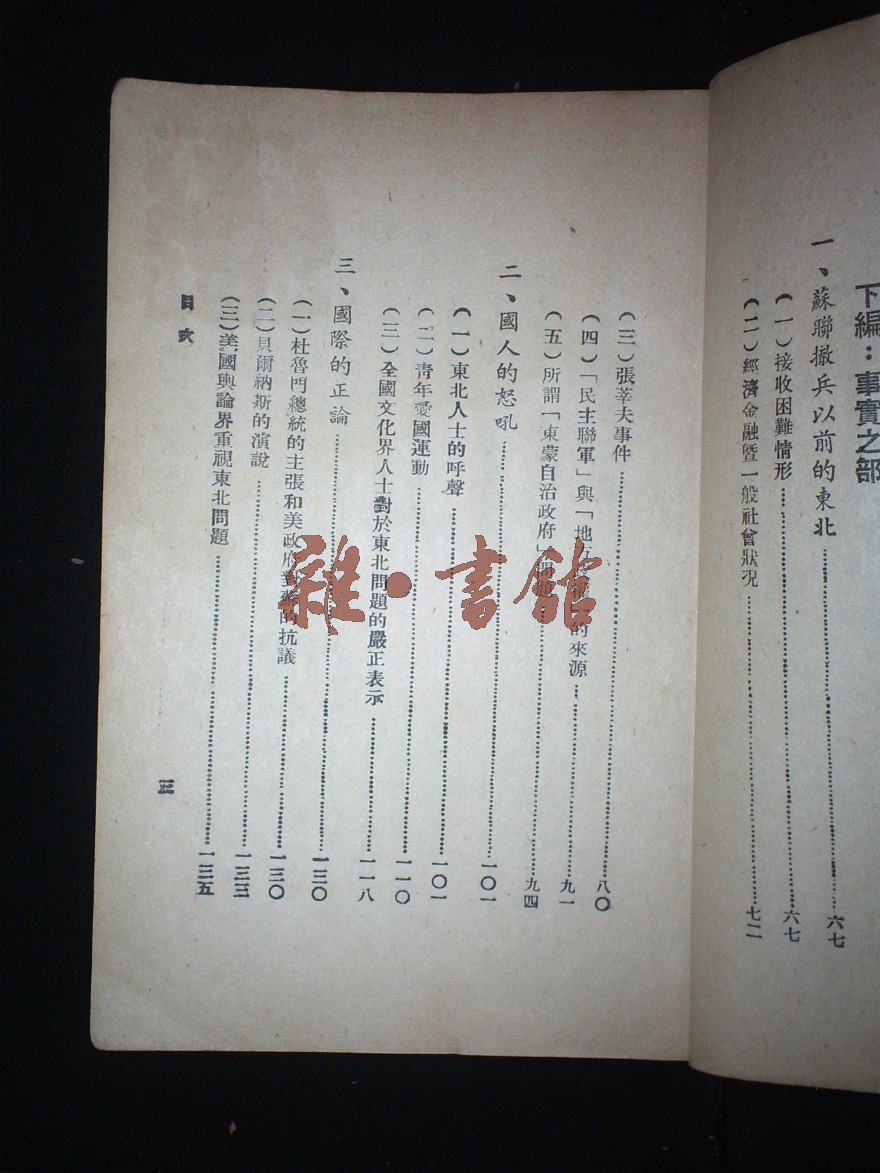 下編：事實之部
一、蘇聯撤兵以前的東北……六七
（一）接收困難情形……六七
（二）經濟金融暨一般社會狀況……七二
（三）張莘夫事件……八〇
（四）「民主聯軍」與「地方政權」的來源……九一
（五）所謂「東蒙自治政府」問題……九四
二、國人的怒吼……一〇一
（一）東北人士的呼聲……一〇一
（二）青年愛國運動……一一〇
（三）全國文化界人士對於東北問題的嚴正表示……一一八
三、國際的正論……一三〇
（一）杜魯門總統的主張和美政府對蘇的抗議……一三〇
（二）貝爾納斯的演說……一三三
（三）美國輿論界重視東北問題……一三五
目次
三
雜·書館